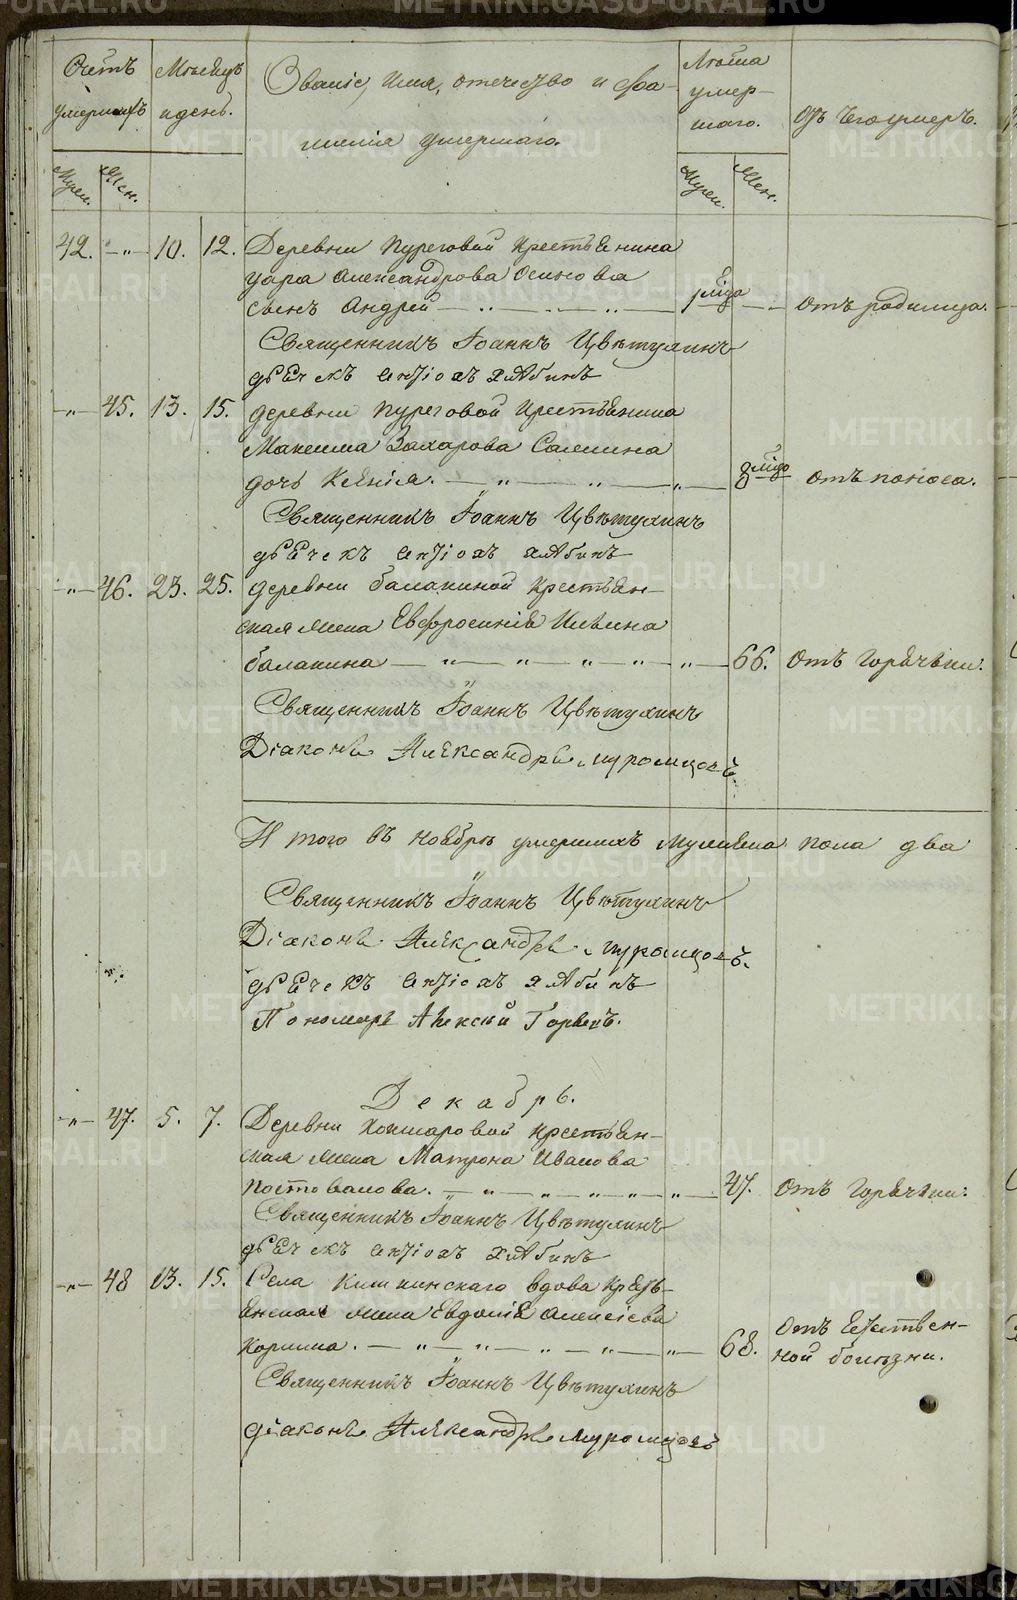 METRIKI.GASO-URAL.RU
Счетъ умершихъ
Мѣсяцъ и день.
Званіе, имя, отечество и фа-
милія умершаго.
Лѣта умер-
шаго.
Отъ чего умеръ.
Муж. Жен.
Муж. Жен.
42. —"— 10. 12. Деревни Пуреговой крестьянина
Александрова Осинова
сынъ Андрей — " — " — " — Отъ родимца.
Священникъ Іоаннъ Цвѣтухинъ
дьячекъ Антіохъ Хлябинъ
—"— 45. 13. 15. деревни Пуреговой крестьянина
Максима Захарова Салмина
дочь Ксенія. — " — " — " — 8 Отъ поноса.
Священникъ Іоаннъ Цвѣтухинъ
дьячекъ Антіохъ Хлябинъ
—"— 46. 23. 25. деревни балакиной крестьян-
ская жена Евфросинія
балакина — " — " — " — " — " — 66. Отъ Горячьки.
Священникъ Іоаннъ Цвѣтухинъ
Діаконъ Александръ Муромцовъ.
И того въ ноябрѣ умершихъ мужеска пола два
Священникъ Іоаннъ Цвѣтухинъ
Діаконъ Александръ Муромцовъ.
дьячекъ Антіохъ Хлябинъ
Пономарь Алексѣй
Декабрь.
—"— 47. 5. 7. Деревни Кокшаровой крестьян-
ская жена Матрона Иванова
Постовалова. — " — " — " — " — " — 47. Отъ Горячьки.
Священникъ Іоаннъ Цвѣтухинъ
дьячекъ Антіохъ Хлябинъ
—"— 48 13. 15. Села Кишкинскаго вдова крестьь-
янская жена Евдокія Алексіева
Коркина. — " — " — " — " — " — 68. Отъ Естествен-
ной болѣзни.
Священникъ Іоаннъ Цвѣтухинъ
діаконъ Александръ Муромцовъ
METRIKI.GASO-URAL.RU